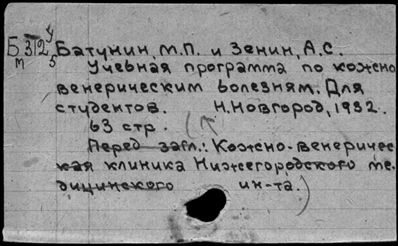 У
Б 312
т 5
Батунин, М.П. и Зенин, А.С.
Учебная программа по кожно
венерическим болезням. Для
студентов. Н.Новгород, 1932.
63 стр.
Перед загл.: Кожно-венеричес
кая клиника Нижегородского ме
дицинского ин-та.)